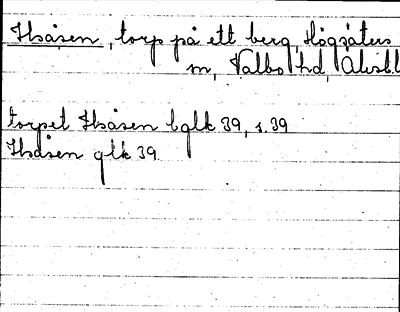 Hsåsen, torp på ett berg, Högsäters
sn, Valbo hd, Älvsb.l
torpet Hsåsen bglk 39, s. 39
Hsåsen glk 39